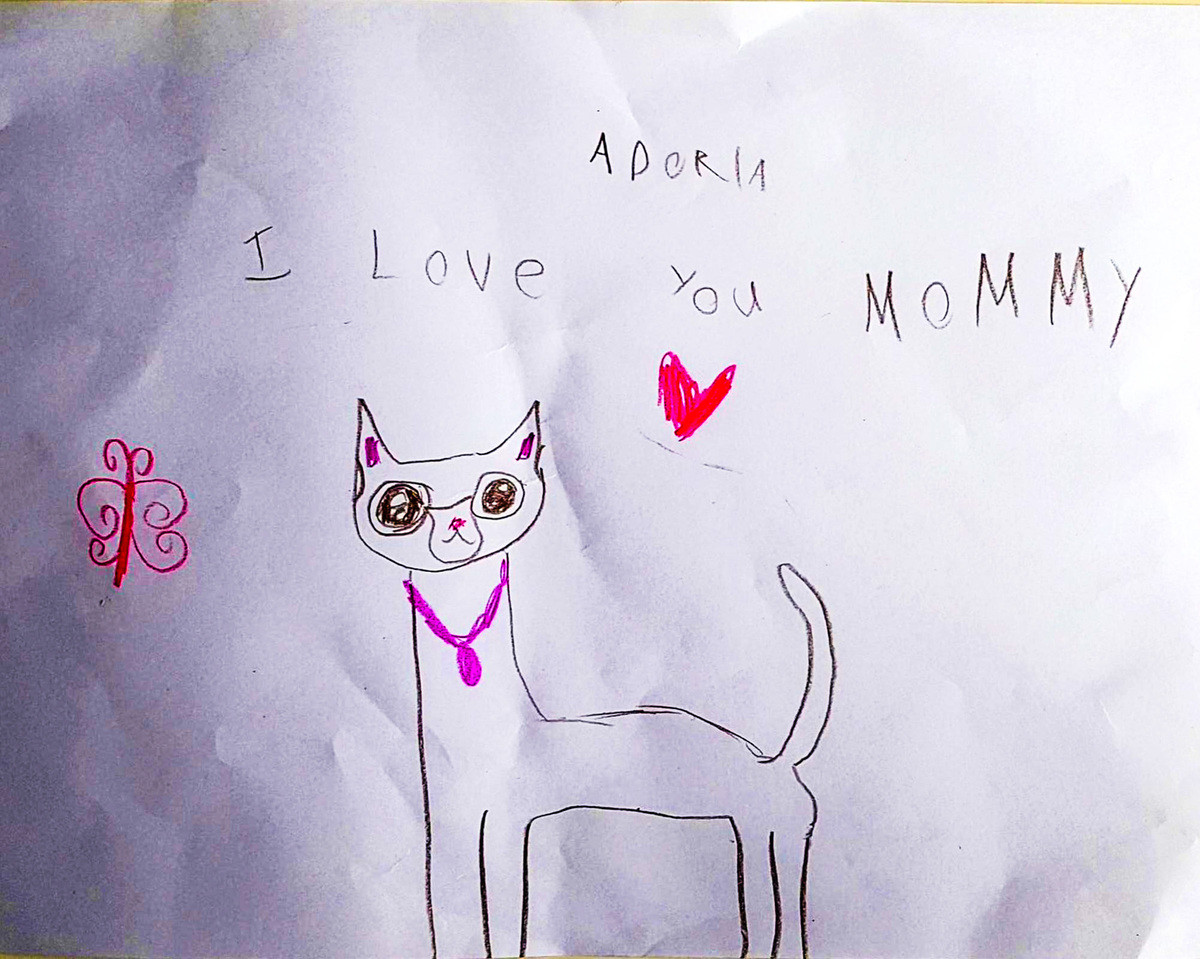 ADORIA
I LOVe YOU MOMMY